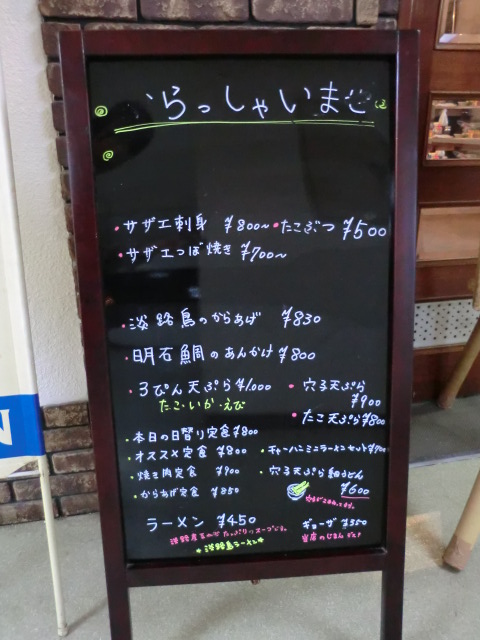 いらっしゃいませ
・サザエ刺身 ¥800〜 ・たこぶつ ¥500
・サザエつぼ焼き ¥700〜
・淡路鳥のからあげ ¥830
・明石鯛のあんかけ ¥800
・3ぴん天ぷら ¥1,000 ・穴子天ぷら
たこ・いか・えび ¥900
・たこ天ぷら ¥800
・本日の日替り定食 ¥800
・オススメ定食 ¥800 ・チャーハンミニラーメンセット ¥700
・焼き肉定食 ¥900 ・穴子天ぷら細うどん
・からあげ定食 ¥850 ¥600
ラーメン ¥450 ギョーザ ¥350
淡路産玉ねぎたっぷりスープです。 当店のじまんデス!
*淡路島ラーメン*
N